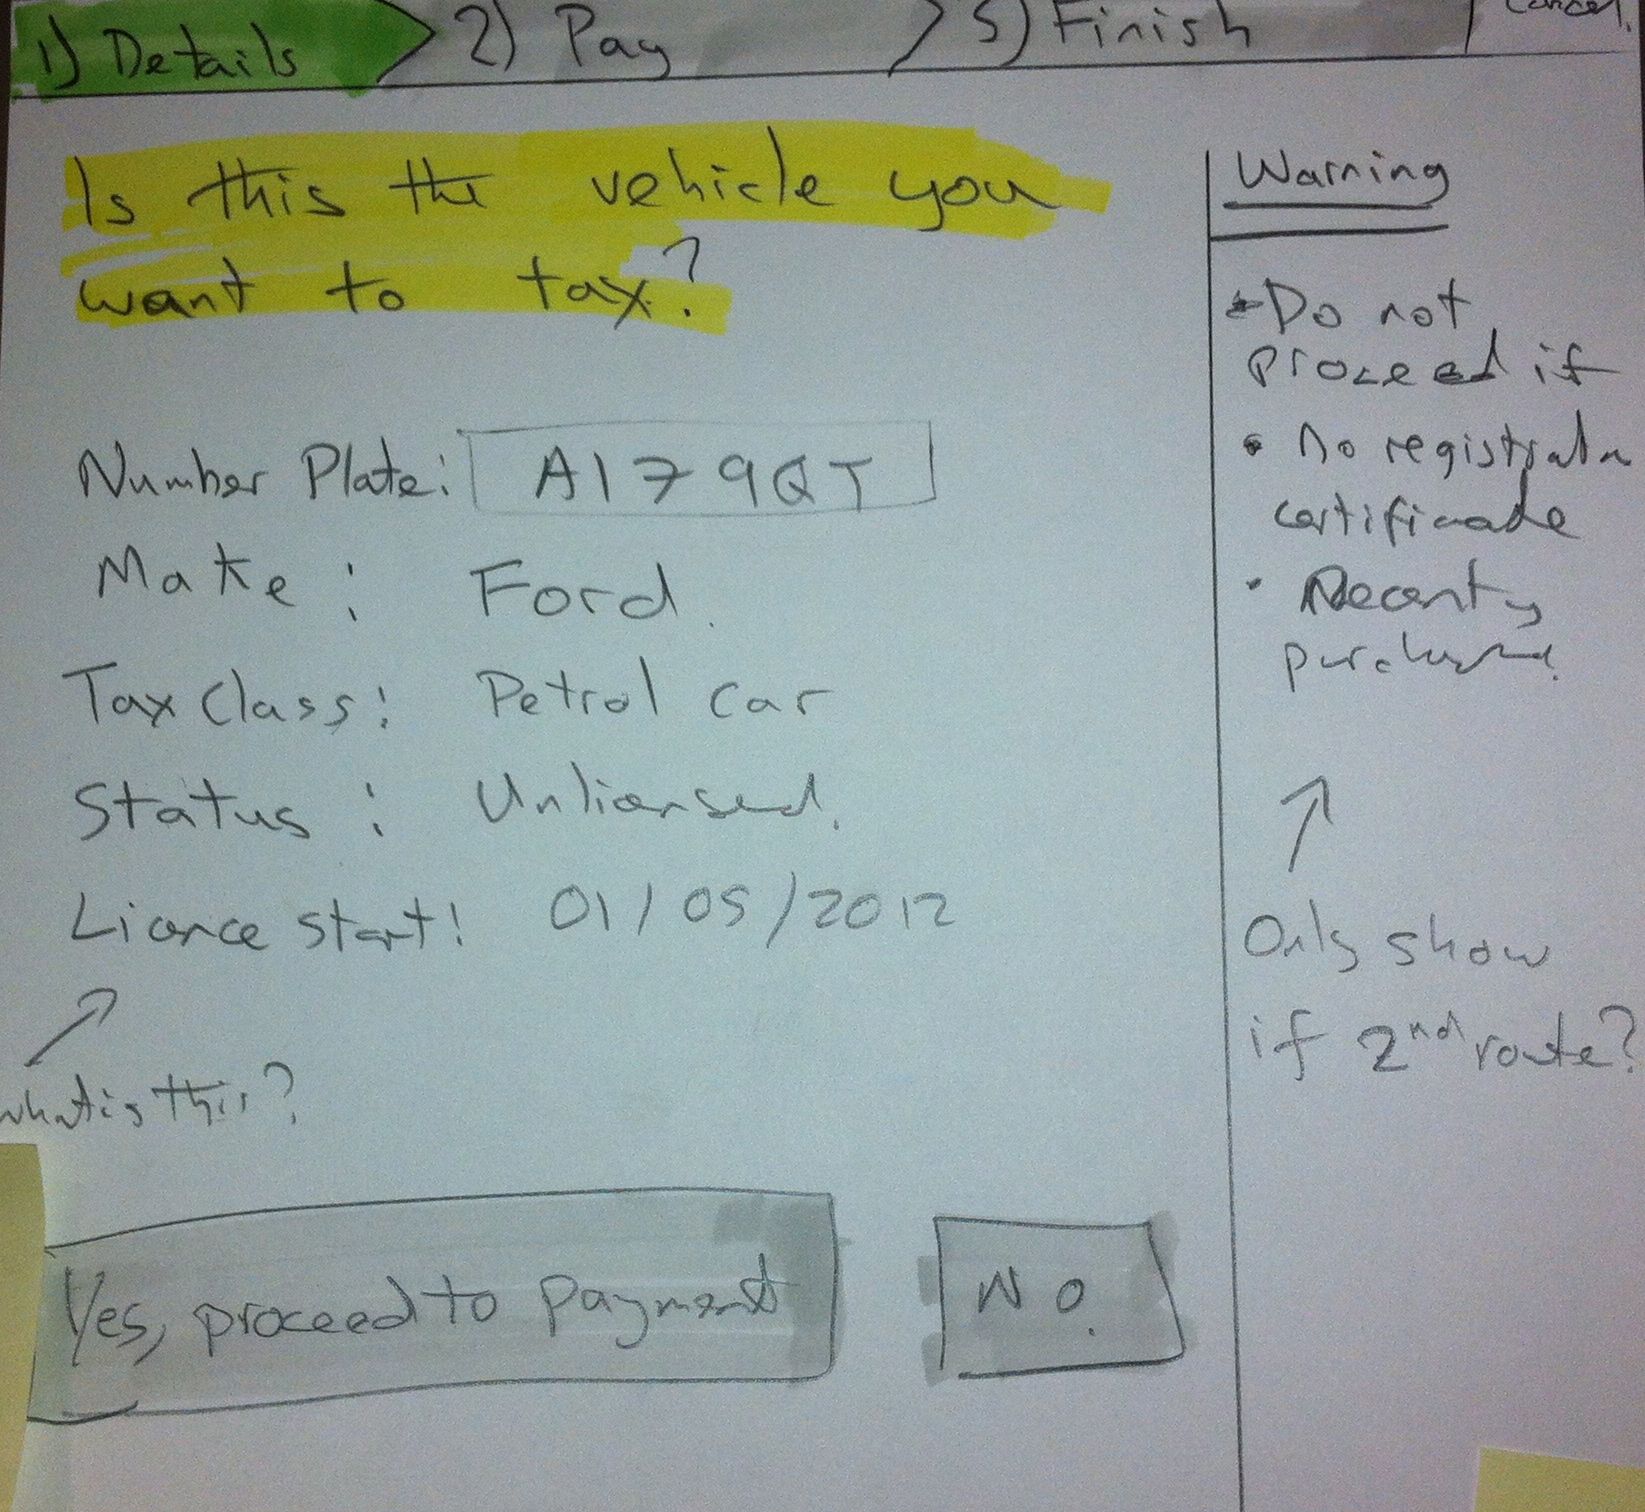 1) Details > 2) Pay > 3) Finish Cancel.
Is this the vehicle you
want to tax?
Number Plate: A179QT
Make: Ford.
Tax Class: Petrol car
Status: Unlicensed.
Licence start: 01/05/2012
What is this?
Yes, proceed to payment
No.
Warning
Do not
proceed if
• No registration
certificate
• Recently
purchased.
Only show
if 2nd route?